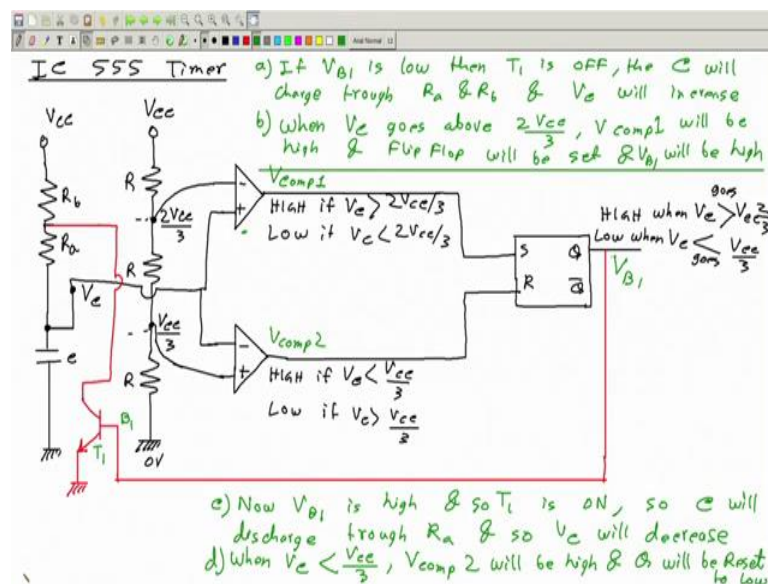 IC 555 Timer
a) If V_B1 is low then T1 is OFF, the C will
charge trough Ra & Rb & Vc will increase
b) When Vc goes above 2Vcc/3, Vcomp1 will be
high & Flip Flop will be set & V_B1 will be high
Vcc
Vcc
Rb
Ra
Vc
c
R
2Vcc/3
R
Vcc/3
R
0V
Vcomp1
-
+
HIGH if Vc > 2Vcc/3
LOW if Vc < 2Vcc/3
Vcomp2
-
+
HIGH if Vc < Vcc/3
LOW if Vc > Vcc/3
S Q
R Q̅
goes
HIGH when Vc > Vcc 2/3
LOW when Vc < Vcc/3
goes
V_B1
B1
T1
c) Now V_B1 is high & so T1 is ON, so C will
discharge trough Ra & so Vc will decrease
d) When Vc < Vcc/3, Vcomp 2 will be high & Q will be Reset
to low